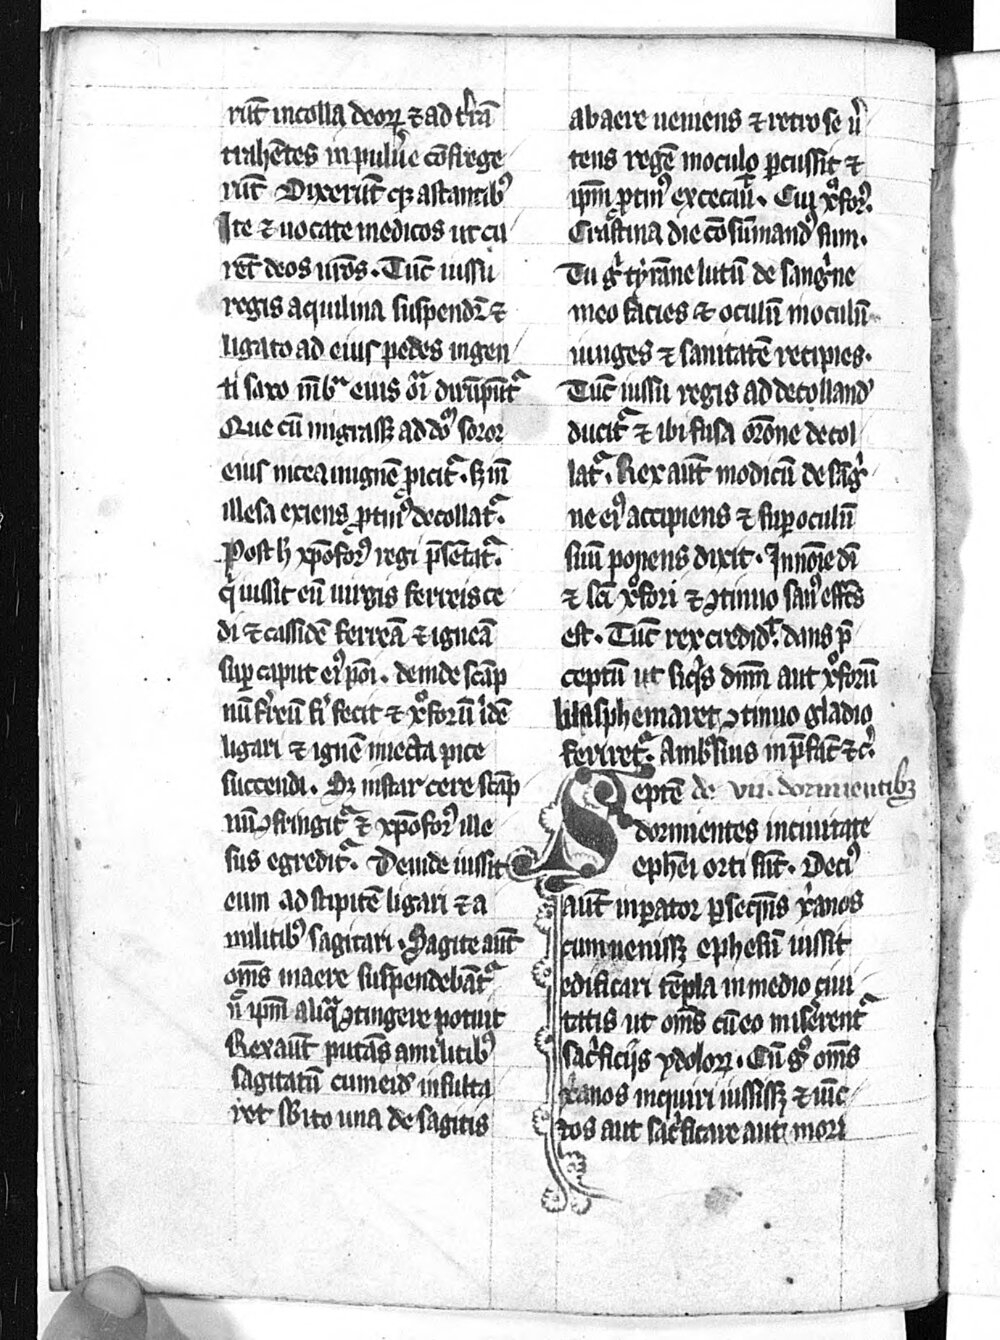 rūt in colla deoꝝ ⁊ ad t̾rā
trahētes in pulu̾e cōfrege
rūt Dixerūt qꝫ astantibꝰ
Ite ⁊ uocate medicos ut cu
rēt deos ur̄os. Tūc iussu
regis aquilina suspendit̾ ⁊
ligato ad eius pedes ingen
ti saxo mēbra eius oīa dirūpūtᷣ
Que cū migrassꝫ ad dōꝫ soror
eius nicea in ignē ꝓicitᷣ. sꝫ īn
illesa exiens ꝓtinꝰ decollatᷣ.
Post h̄ xp̄oforꝰ regi p̄sētatᷣ.
qͥ iussit eū uirgis ferreis ce
di ⁊ cassidē ferreā ⁊ igneā
suꝑ caput eiꝰ pōi. deinde scāp
nū fẜreū fiͥ fecit ⁊ xͦforū ibidē
ligari ⁊ ignē iniecta pice
succendi. Sꝫ instar cere scāp
nū ꝯfringitᷣ ⁊ xp̄oforꝰ ille
sus egreditᷣ. Deinde iussit
eum ad stipitē ligari ⁊ a
militibꝰ sagitari. Sagite aūt
om̄s in aere suspendebātᷣ
n̄ ipm̄ aliqͣ ꝯtingere potuit
Rex aūt putās a militibꝰ
sagitatū cum eidꝫ insulta
ret sb̾ito una de sagitis
ab aere ueniens ⁊ retro se u̾
tens regē in oculo ꝑcussit ⁊
ipm̄ ꝓtinꝰ excecauit. Cui xͦforꝰ.
Crastina die cōsūmandꝰ sum.
Tu gͦ tyrāne lutū de sangͥne
meo facies ⁊ oculū in oculū
iunges ⁊ sanitatē recipies.
Tūc iussu regis ad decollandꝰ
ducitᷣ ⁊ ibi fusa orōne decol
latᷣ. Rex aūt modicū de sāgͥ
ne eiꝰ accipiens ⁊ suꝑ oculū
suū ponens dixit. In noīe dī
⁊ sc̄i xͦfori ⁊ ꝯtinuo sanꝰ effc̄s
est. Tūc rex credidit. dans p̄
ceptū ut siqͥs dm̄ aut xͦforū
blasphemaret ꝯtinuo gladio
feriretᷣ. Ambrosius in p̄fat̄ ⁊c̾.
Septē de vii. dormientibꝫ
dormientes in ciuitate
ephēi orti sūt. Deciꝰ
aūt inperator ꝑseqn̄s xͬanos
cum uenissꝫ ephesū iussit
edificari tēpla in medio ciui
tatis ut om̄s cū eo miscerentᷣ
sac̾ficijs ydoloꝝ. Cū gͦ om̄s
xͬanos inquiri iussissꝫ ⁊ uīc
tos aut sac̾ficare aut mori